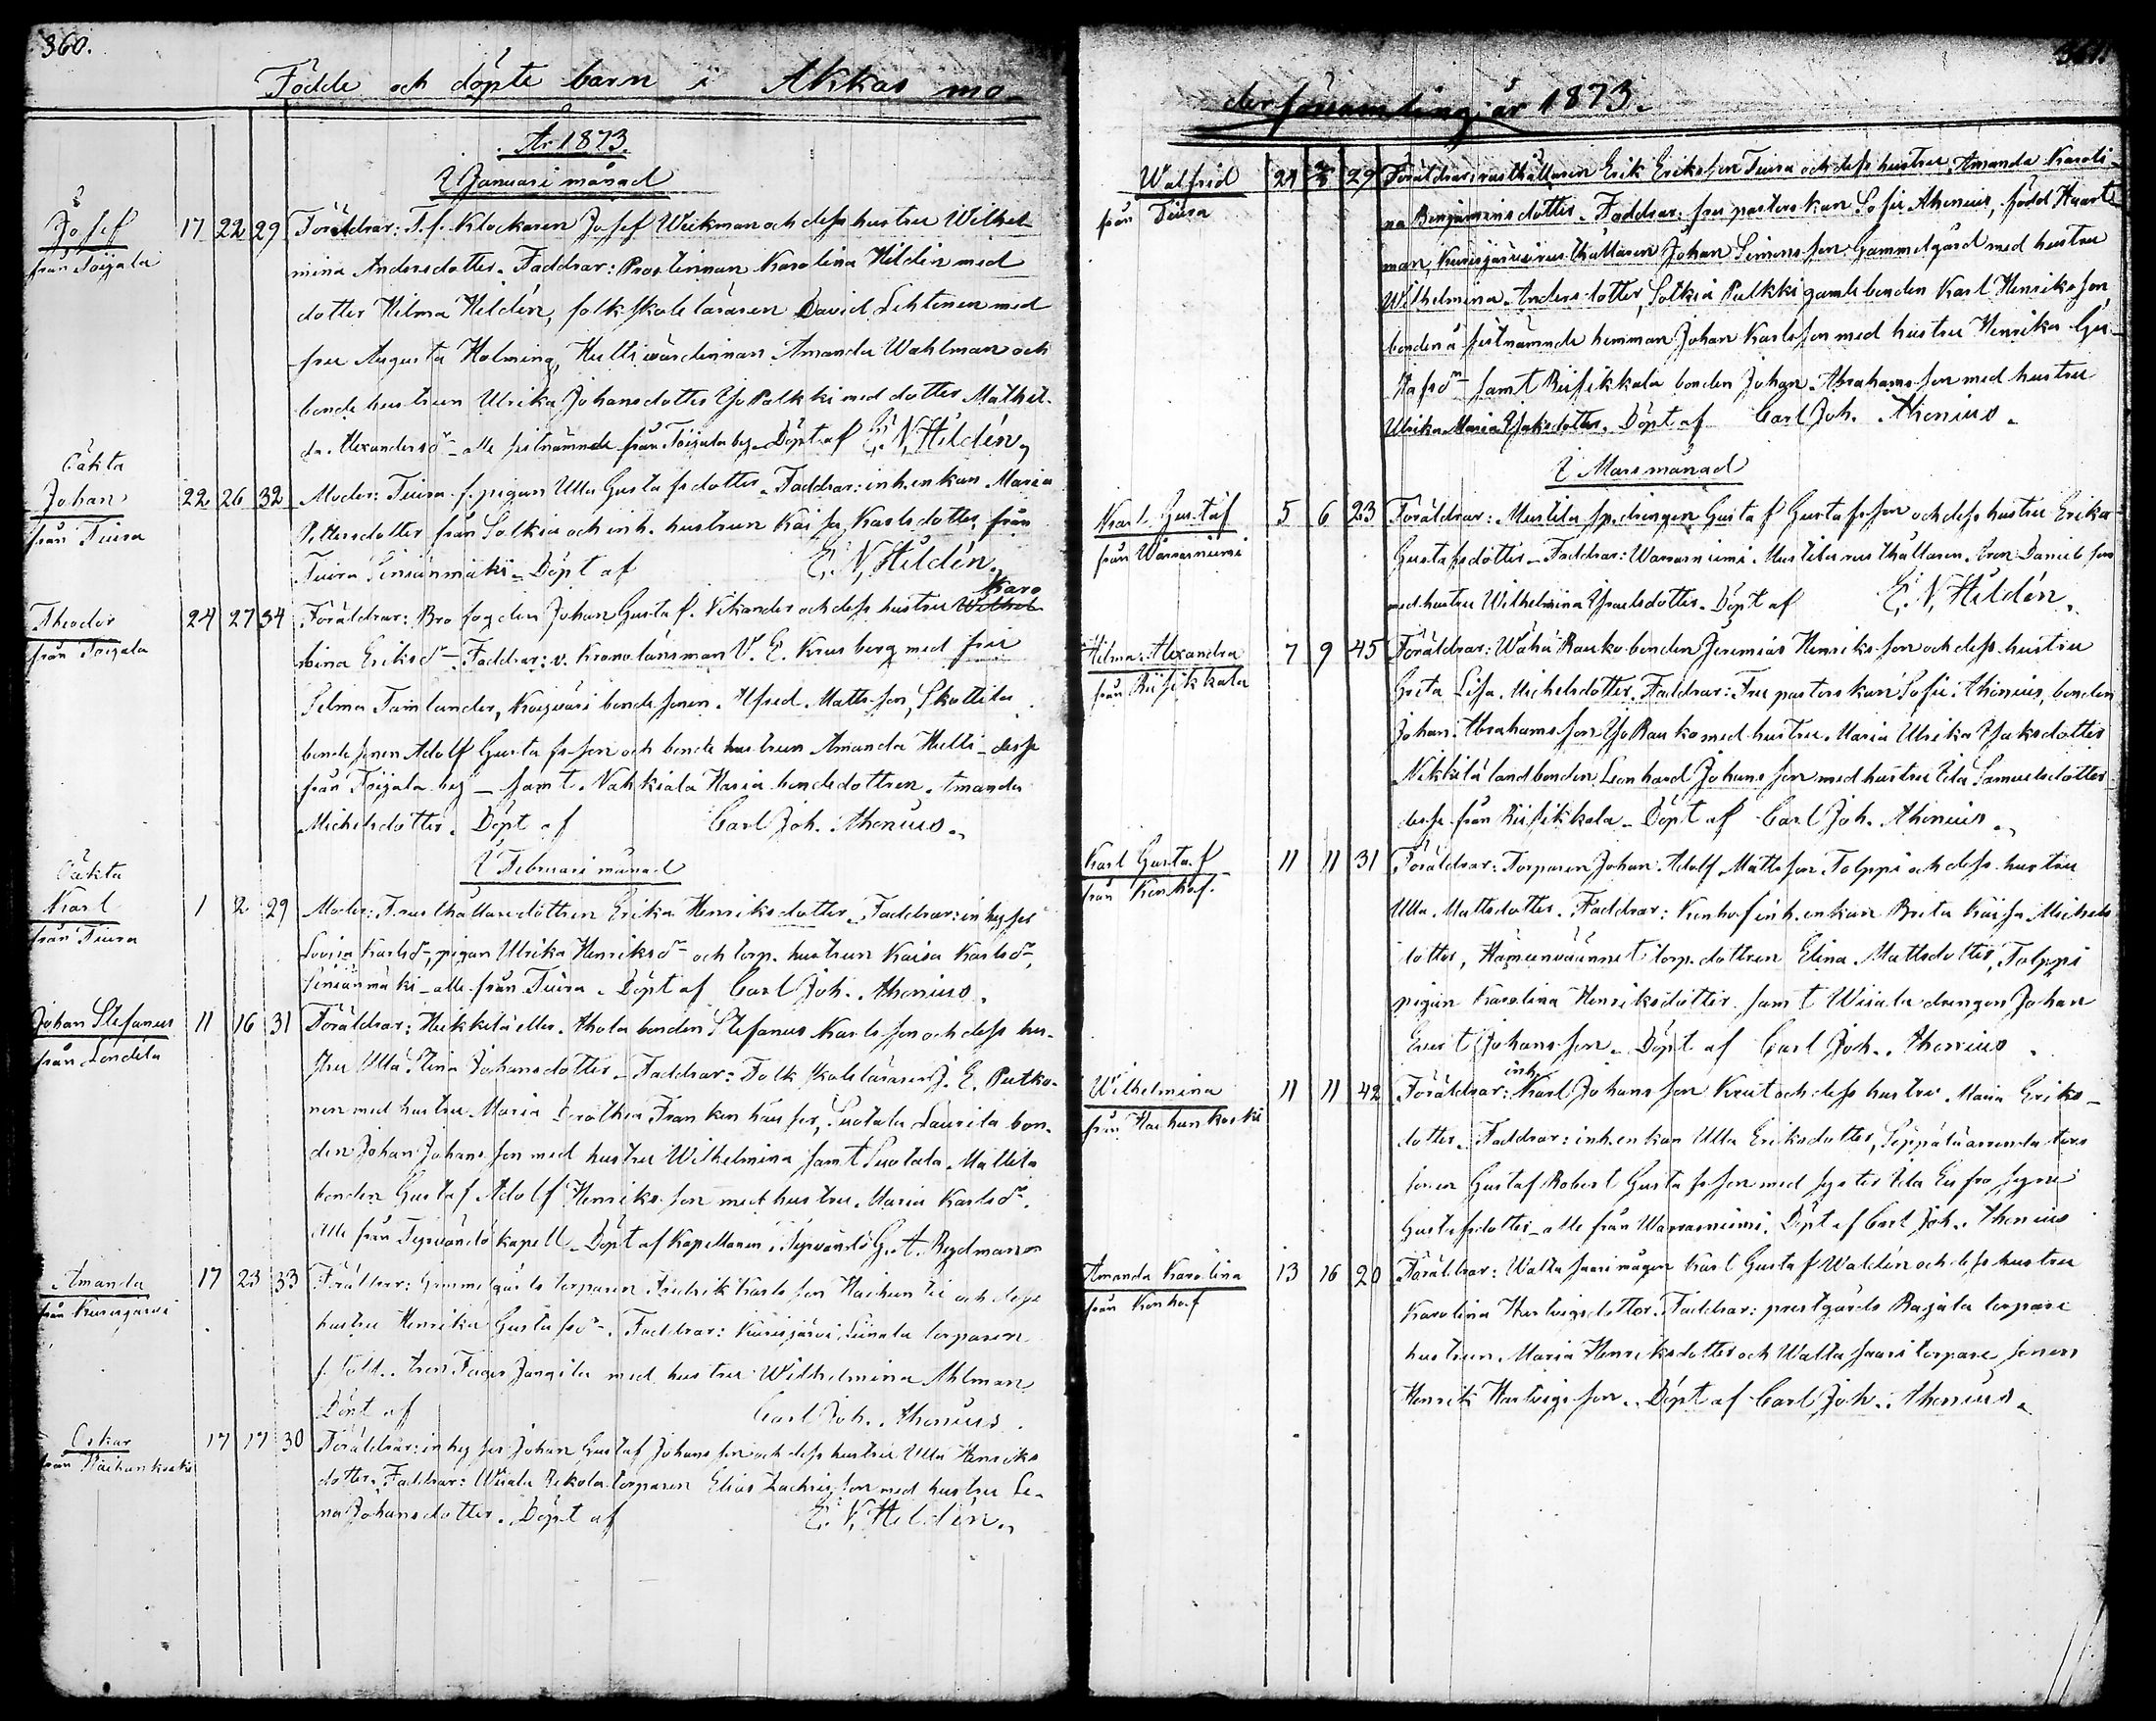 360.
Födde och döpte barn i Akkas mo-
År 1873.
I Januari månad
Josef
från Toijala
17 22 29 Föräldrar: T. f. Klockaren Josef Wickman och dess hustru Wilhel-
mina Andersdotter. Faddrar: Prostinnan Karolina Hildén med
dotter Hilma Hildén, folkskoleläraren David Lehtonen med
fru Augusta Holming, Hulli värdinnan Amanda Wahlman och
bondehustrun Ulrika Johansdotter Yso Palkki med dotter Mathil-
da Alexandersdr - alle sistnämnde från Toijala by. Döpt af E. N. Hildén.
Oäkta
Johan
från Tiura
22 26 32 Moder: Tiura f. pigan Ulla Gustafsdotter. Faddrar: inh. enkan Maria
Pettersdotter från Sotkia och inh. hustrun Kaisa Karlsdotter från
Tiura Siniänmäki - Döpt af E. N. Hildén
Theodor
från Toijala
24 27 34 Föräldrar: Brofogden Johan Gustaf Vikander och dess hustru Wilhel- Karo
mina Eriksdr - Faddrar: v. Kronolänsman V. E. Krusberg med fru
Selma Tamlander, bondesonen Alfred Mattsson, Skottila
bondesonen Adolf Gustafsson och bondehustrun Amanda Hulli - desse
från Toijala by - samt Nahkiala Maria bondedottren Amanda
Michelsdotter. Döpt af Carl Joh. Ahonius.
I Februari månad
Oäkta
Karl
från Tiura
1 2 29 Moder: F. rusthållaredottren Erika Henriksdotter. Faddrar: inhyses
Lovisa Karlsdr, pigan Ulrika Henriksdr och torp. hustrun Kaisa Karlsdr
Siniänmäki - alle från Tiura. Döpt af Carl Joh. Ahonius.
Johan Stefanus
från Sondila
11 16 31 Föräldrar: Heikkilä eller Ahola bonden Stefanus Karlsson och dess hu-
stru Ulla Stina Johansdotter - Faddrar: Folkskoleläraren J. E. Putko-
nen med hustru Maria Dorothea Suotala Laurila bon-
den Johan Johansson med hustru Wilhelmina samt Suotala Mattila
bonden Gustaf Adolf Henriksson med hustru Maria Karlsdr.
alle från Tyrväntö kapell - Döpt af Kapellanen i Tyrväntö G. A. Rydman
Amanda
från Kurisjärvi
17 23 33 Föräldrar: Gammelgårds torparen Fredrik Karlsson Haihuntie och dess
hustru Henrika Gustafsdr. Faddrar: Kurisjärvi torparen
med hustru Wilhelmina Ahlman
Döpt af Carl Joh. Ahonius.
Oskar
från Haihunkoski
17 17 30 Föräldrar: inhyses Johan Gustaf Johansson och dess hustru Ulla Henriks
dotter. Faddrar: Wiiala Rekola torparen Elias Zachrisson med hustru Le-
na Johansdotter. Döpt af E. N. Hildén.
361.
der församling år 1873.
Walfrid
från Tiura
24 29 Föräldrar: rusthållaren Erik Eriksson Tiura och dess hustru Amanda Karoli-
na Benjaminsdotter. Faddrar: fru pastorskan Sofie Ahonius, född Haart-
man, Kurisjärvi rusthållaren Johan Simonsson Gammelgård med hustru
Wilhelmina Andersdotter, Sotkia Pulkki gamle bonden Karl Henriksson
bonden å sistnämnde hemman Johan Karlsson med hustru Henrika Gu-
stafsdr samt Riisikkala bonden Johan Abrahamsson med hustru
Ulrika Maria Isaksdotter. Döpt af Carl Joh. Ahonius.
I Mars månad
Karl Gustaf
från Warrasniemi
5 6 23 Föräldrar: Mustila sp. drengen Gustaf Gustafsson och dess hustru Erika
Gustafsdotter - Faddrar: Warrasniemi Mustila rusthållaren Danielsson
med hustru Wilhelmina Israelsdotter. Döpt af E. N. Hildén.
Hilma Alexandra
från Riisikkala
7 9 45 Föräldrar: Wähä Rauko bonden Jeremias Henriksson och dess hustru
Greta Lisa Michelsdotter. Faddrar: Fru pastorskan Sofie Ahonius, bonden
Johan Abrahamsson Yso Rauko med hustru Maria Ulrika Isaksdotter
Nikkilä landbonden Leonhard Johansson med hustru Ida Samuelsdotter
desse från Riisikkala - Döpt af Carl Joh. Ahonius.
Karl Gustaf
från Konho f.
11 11 31 Föräldrar: Torparen Johan Adolf Mattsson Tolppi och dess hustru
Ulla Mattsdotter. Faddrar: Konho f. inh. enkan Brita Kaisa Michels
dotter, torp. dottren Elina Mattsdotter, Tolppi
pigan Karolina Henriksdotter samt Wiiala drengen Johan
Evert Johansson. Döpt af Carl Joh. Ahonius.
Wilhelmina
från Haihunkoski
11 11 42 Föräldrar: inh. Karl Johansson Kreut och dess hustru Maria Eriks-
dotter. Faddrar: inh. enkan Ulla Eriksdotter, Seppälä arrendators
sonen Gustaf Robert Gustafsson med syster Ida Eufrosyne
Gustafsdotter - alle från Warrasniemi. Döpt af Carl Joh. Ahonius
Amanda Karolina
från Konho f
13 16 20 Föräldrar: Waltasaari mågen Karl Gustaf Waldén och dess hustru
Karolina Hartvigsdotter. Faddrar: prestgårds Rajala torpare
hustrun Maria Henriksdotter och Waltasaari torpare sonen
Henrik Hartvigsson. Döpt af Carl Joh. Ahonius.